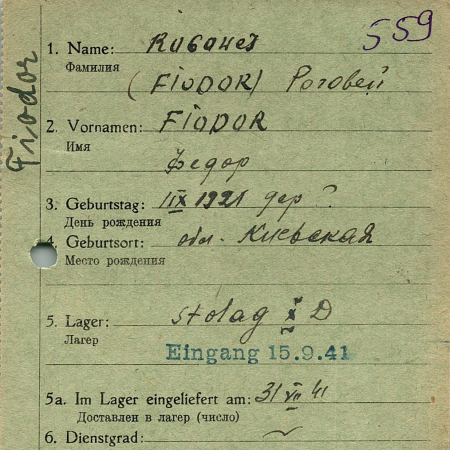 559
Fiodor
1. Name:
Фамилия
(FIODOR) Роговей
2. Vornamen: FIODOR
Имя
Федор
3. Geburtstag: IX 1921 дер ?
День рождения
4. Geburtsort: обл. Киевская
Место рождения
5. Lager: Stalag X D
Лагер
Eingang 15.9.41
5a. Im Lager eingeliefert am: 31 VII 41
Доставлен в лагер (число)
6. Dienstgrad: